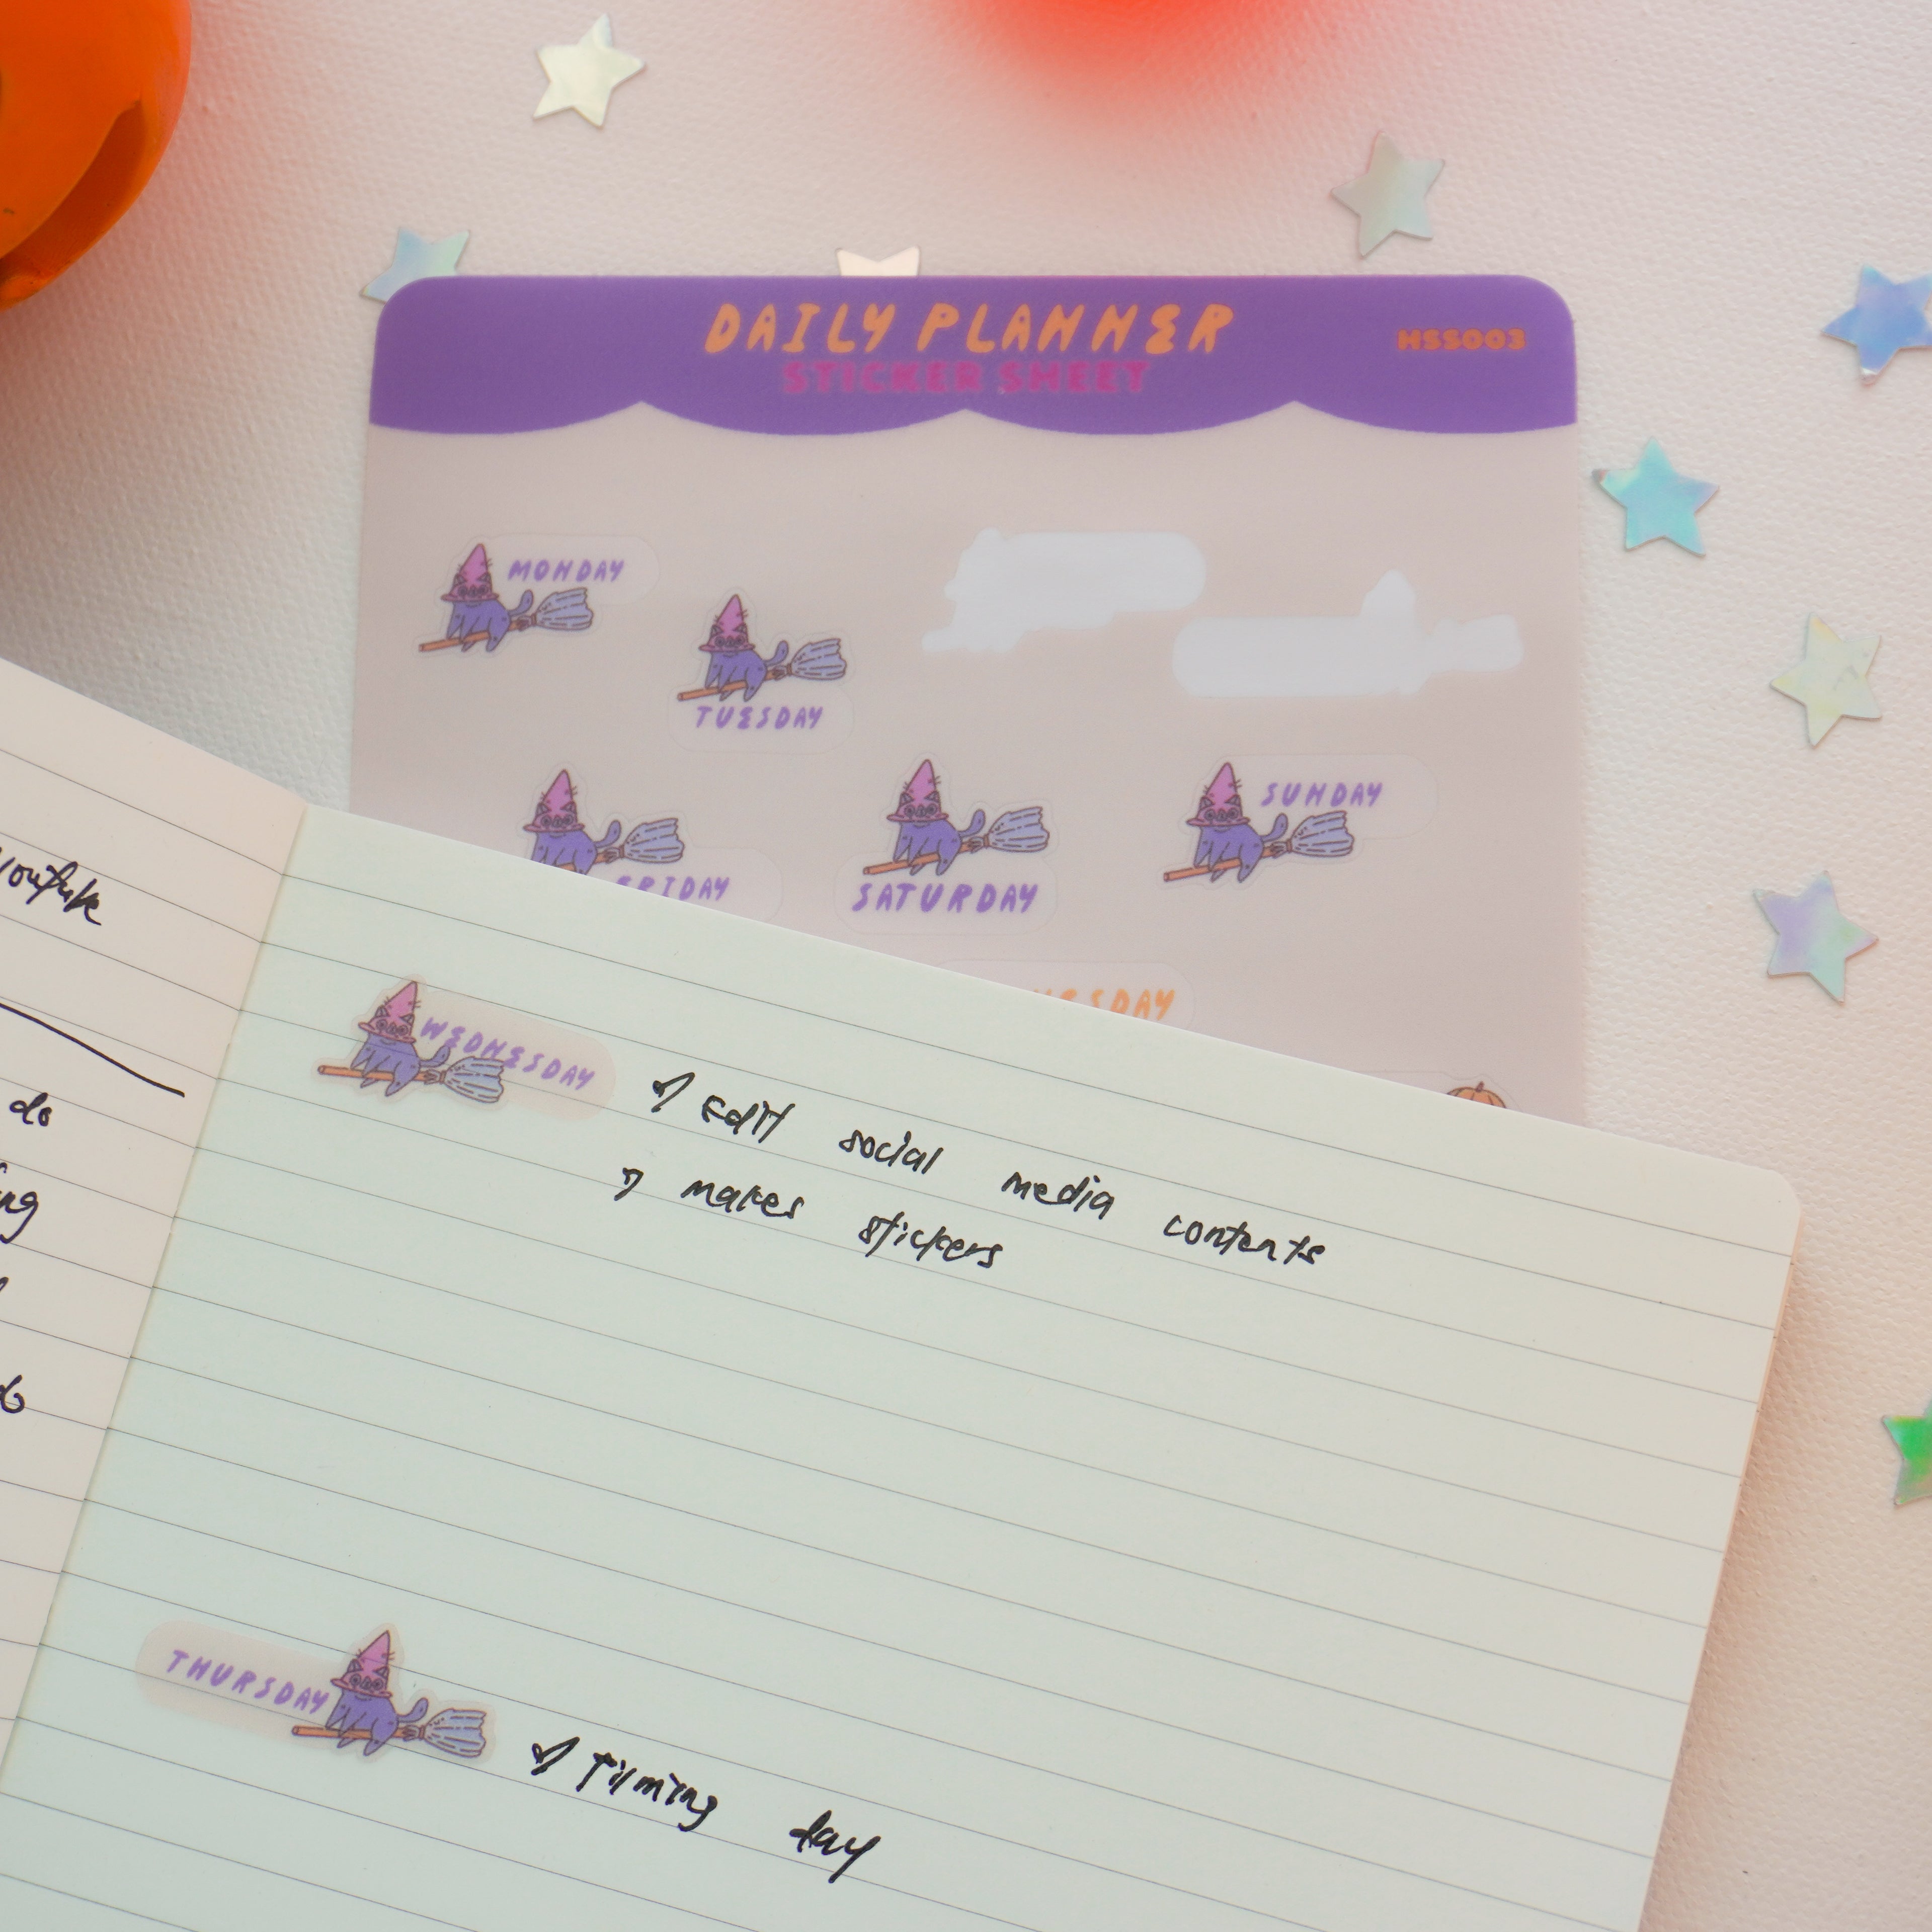 DAILY PLANNER
STICKER SHEET
HSS003
MONDAY
TUESDAY
FRIDAY
SATURDAY
SUNDAY
WEDNESDAY
Edit social media contents
makes stickers
THURSDAY
Filming day
do